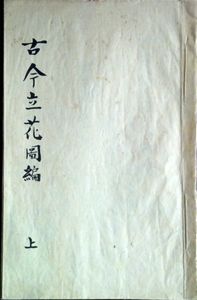 古今立花圖編
上